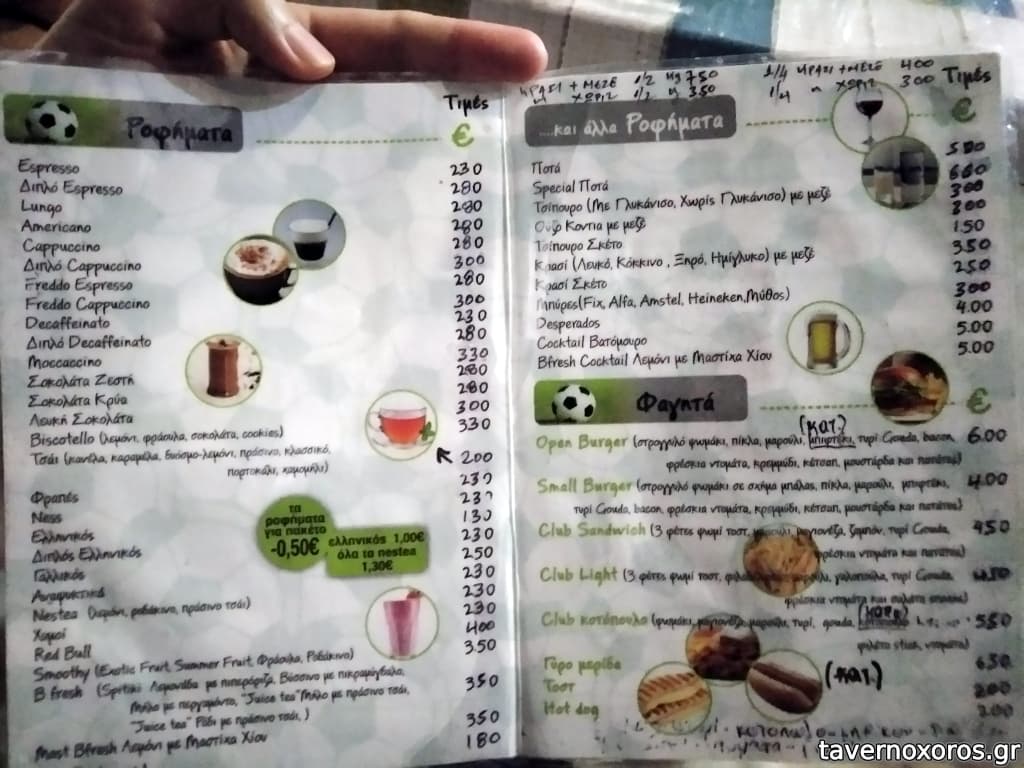 Τιμές
€
Ροφήματα
Espresso 230
Διπλό Espresso 280
Lungo 280
Americano 280
Cappuccino 280
Διπλό Cappuccino 300
Freddo Espresso 280
Freddo Cappuccino 300
Decaffeinato 230
Διπλό Decaffeinato 280
Moccaccino 330
Σοκολάτα Ζεστή 280
Σοκολάτα Κρύα 280
Λευκή Σοκολάτα 300
Biscotello (λεμόνι, φράουλα, σοκολάτα, cookies) 330
Τσάι (κανέλα, καραμέλα, δυόσμο-λεμόνι, πράσινο, κλασσικό, 200
πορτοκάλι, χαμομήλι)
Φραπές 230
Ness 230
Ελληνικός 130
Διπλός Ελληνικός 230
Γαλλικός 250
Αναψυκτικά 230
Nestea (λεμόνι, ροδάκινο, πράσινο τσάι) 230
Χυμοί 230
Red Bull 400
Smoothy (Exotic Fruit, Summer Fruit, Φράουλα, Ροδάκινο) 350
B fresh (Spritski Λεμονάδα με πιπερόριζα, Βύσσινο με πικραμύγδαλο, 350
Μήλο με περγαμόντο, "Juice tea" Μήλο με πράσινο τσάι,
"Juice tea" Ρόδι με πράσινο τσάι, ) 350
Mast Bfresh Λεμόνι με Μαστίχα Χίου 180
τα
ροφήματα
για πακέτο
-0,50€
ελληνικός 1,00€
όλα τα nestea
1,30€
ΚΡΑΣΙ + ΜΕΖΕ 1/2 κ 750
ΧΩΡΙΣ 1/2 κ 350
1/4 ΚΡΑΣΙ + ΜΕΖΕ 400
1/4 κ ΧΩΡΙΣ 300
Τιμές
€
....και άλλα Ροφήματα
Ποτά 500
Special Ποτά 600
Τσίπουρο (Με Γλυκάνισο, Χωρίς Γλυκάνισο) με μεζέ 300
Ούζο Κοντια με μεζέ 300
Τσίπουρο Σκέτο 1.50
Κρασί (Λευκό, Κόκκινο , Ξηρό, Ημίγλυκο) με μεζέ 350
Κρασί Σκέτο 250
Μπύρες(Fix, Alfa, Amstel, Heineken,Μύθος) 300
Desperados 4.00
Cocktail Βατόμουρο 5.00
Bfresh Cocktail Λεμόνι με Μαστίχα Χίου 5.00
Φαγητά
€
(κατ.)
Open Burger (στρογγυλό ψωμάκι, πίκλα, μαρούλι, μπιφτέκι, τυρί Gouda, bacon, 6.00
φρέσκια ντομάτα, κρεμμύδι, κέτσαπ, μουστάρδα και πατάτες)
Small Burger (στρογγυλό ψωμάκι σε σχήμα μπάλας, πίκλα, μαρούλι, μπιφτέκι, 4.00
τυρί Gouda, bacon, φρέσκια ντομάτα, κρεμμύδι, κέτσαπ, μουστάρδα και πατάτες)
Club Sandwich (3 φέτες ψωμί τοστ, μαρούλι, μαγιονέζα, ζαμπόν, τυρί Gouda, 450
φρέσκια ντομάτα και πατάτες)
Club Light (3 φέτες ψωμί τοστ, μαρούλι, γαλοπούλα, τυρί Gouda, 450
φρέσκια ντομάτα
Club κοτόπουλο (ψωμάκι, μαγιονέζα, μαρούλι, τυρί, gouda, 550
φιλέτο stick, ντομάτα)
Γύρο μερίδα 650
Τοστ 200
Hot dog (κατ.) 200
tavernoxoros.gr